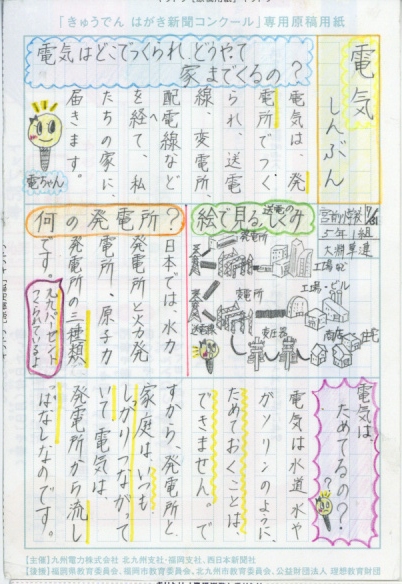 「きゅうでん はがき新聞コンクール」専用原稿用紙
電気しんぶん
電気はどこでつくられ、どうやって
家までくるの？
電気は、発
電所でつく
られ、送電
線、変電所、
配電線など
を経て、私
たちの家に、
届きます。
電ちゃん
5年1組
絵で見る送電のしくみ
発電所
変電所
変圧器
工場など
工場・ビル
商店・住宅
何の発電所？
日本では、水力
発電所と火力発
電所、原子力
発電所の三種類
です。
つくられているよ
電気は、
ためてるの？
電気は水道水や
ガソリンのように、
ためておくことは
できません。で
すから、発電所と、
家庭は、いつも
しっかりつながって
いて電気は、
発電所から流し
っぱなしなのです。
【主催】九州電力株式会社 北九州支社・福岡支社、西日本新聞社
【後援】福岡県教育委員会、福岡市教育委員会、北九州市教育委員会、公益財団法人 理想教育財団